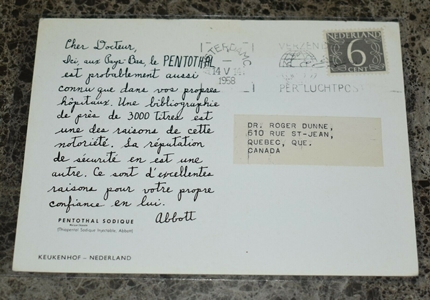 Cher Docteur,
Ici, aux Pays Bas, le PENTOTHAL
est probablement aussi
connu que dans vos propres
hôpitaux. Une bibliographie
de près de 3000 titres est
une des raisons de cette
notoriété. La réputation
de sécurité en est une
autre. Ce sont d'excellentes
raisons pour votre propre
confiance en lui.
Abbott
PENTOTHAL SODIQUE
(Thiopental Sodique Injectable, Abbott)
KEUKENHOF - NEDERLAND
14 V
1968
PER LUCHTPOST
NEDERLAND
6
CENT
DR. ROGER DUNNE,
610 RUE ST-JEAN,
QUEBEC, QUE.
CANADA